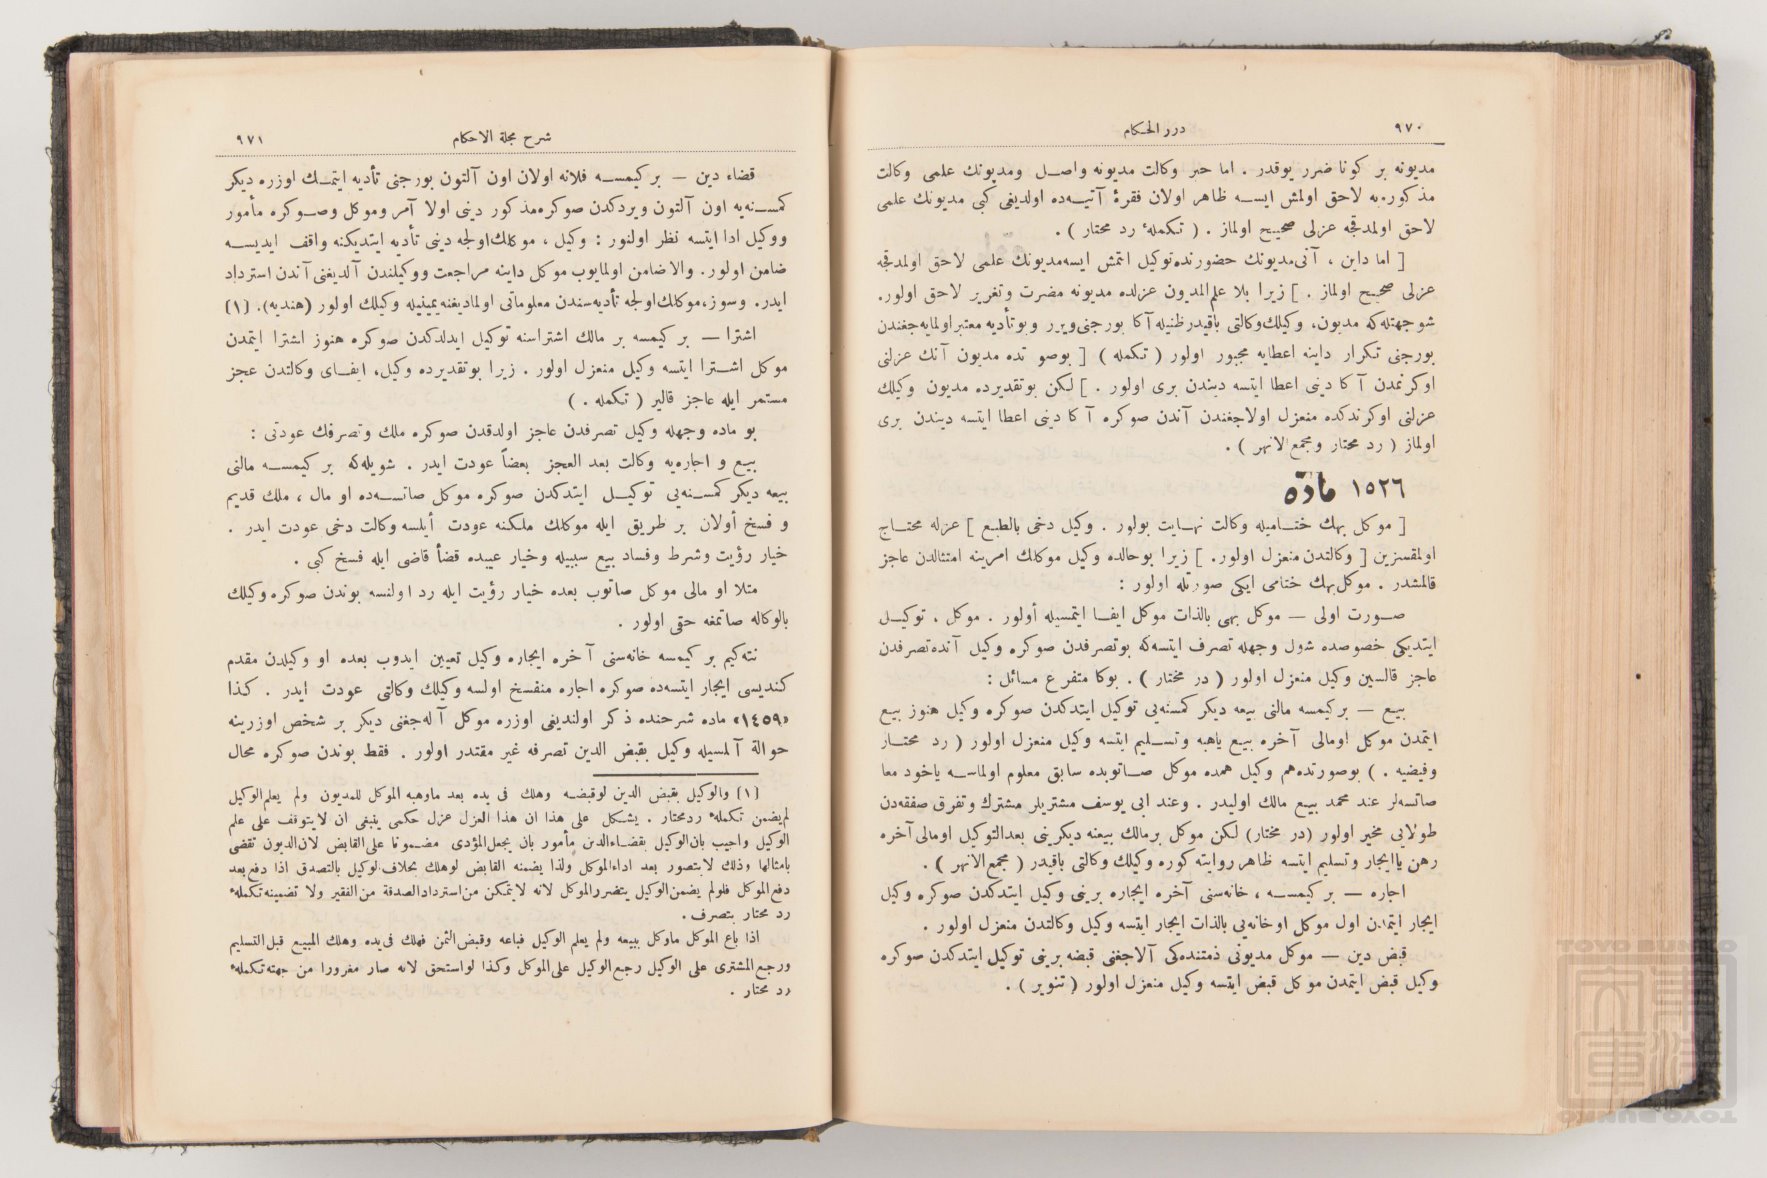 ٩٧٠
درر الحكام
مديونه بر كونا ضرر يوقدر . اما خبر وكالت مديونه واصل ومديونك علمى وكالت
مذكوره‌يه لاحق اولمش ايسه ظاهر اولان فقرۀ آتيه‌ده اولديغى كبى مديونك علمى
لاحق اولمدقجه عزلى صحيح اولماز . ( تكملهٔ رد محتار ) .
[ اما داين ، آنى مديونك حضورنده توكيل اتمش ايسه مديونك علمى لاحق اولمدقجه
عزلى صحيح اولماز . ] زيرا بلا علم المديون عزلده مديونه مضرت وتغرير لاحق اولور.
شو جهتله كه مديون، وكيلك وكالتى باقيدر ظنيله آكا بورجنى ويرر وبو تأديه معتبر اولمايه جغندن
بورجنى تكرار داينه اعطايه مجبور اولور ( تكمله ) [ بوصورتده مديون آنك عزلنى
اوكرنمدن آكا دينى اعطا ايتسه ديندن برى اولور . ] لكن بو تقديرده مديون وكيلك
عزلنى اوكرندكده منعزل اولاجغندن آندن صوكره آكا دينى اعطا ايتسه ديندن برى
اولماز ( رد محتار ومجمع الانهر ) .
١٥٢٦ مادّه
[ موكل بهك ختاميله وكالت نهايت بولور . وكيل دخى بالطبع ] عزله محتاج
اولمقسزين [ وكالتدن منعزل اولور. ] زيرا بو حالده وكيل موكلك امرينه امتثالدن عاجز
قالمشدر . موكل بهك ختامى ايكى صورتله اولور :
صورت اولى — موكل بهى بالذات موكل ايفا ايتمسيله أولور . موكل ، توكيل
ايتديكى خصوصده شول وجهله تصرف ايتسه كه بو تصرفدن صوكره وكيل آنده تصرفدن
عاجز قالسين وكيل منعزل اولور ( در مختار ) . بوكا متفرع مسائل :
بيع — بر كيمسه مالنى بيعه ديكر كمسنه‌يى توكيل ايتدكدن صوكره وكيل هنوز بيع
ايتمدن موكل اومالى آخره بيع ياهبه وتسليم ايتسه وكيل منعزل اولور ( رد محتار
وفيضيه . ) بوصورتده هم وكيل همده موكل صاتوبده سابق معلوم اولماسه ياخود معا
صاتسه‌لر عند محمد بيع مالك اوليدر . وعند ابى يوسف مشتريلر مشترك وتفرق صفقه‌دن
طولايى مخير اولور (در مختار) لكن موكل بر مالك بيعنه ديكرينى بعد التوكيل اومالى آخره
رهن يا ايجار وتسليم ايتسه ظاهر روايته كوره وكيلك وكالتى باقيدر ( مجمع الانهر ) .
اجاره — بر كيمسه ، خانه‌سنى آخره ايجاره برينى وكيل ايتدكدن صوكره وكيل
ايجار ايتمدن اول موكل او خانه‌يى بالذات ايجار ايتسه وكيل وكالتدن منعزل اولور .
قبض دين — موكل مديونى ذمتنده‌كى آلاجغنى قبضه برينى توكيل ايتدكدن صوكره
وكيل قبض ايتمدن موكل قبض ايتسه وكيل منعزل اولور ( تنوير ) .
شرح مجلة الاحكام
٩٧١
قضاء دين — بر كيمسه فلانه اولان اون آلتون بورجنى تأديه ايتمك اوزره ديكر
كمسنه‌يه اون آلتون ويردكدن صوكره مذكور دينى اولا آمر وموكل وصوكره مأمور
ووكيل ادا ايتسه نظر اولنور : وكيل ، موكلك اولجه دينى تأديه ايتديكنه واقف ايديسه
ضامن اولور. والا ضامن اولمايوب موكل داينه مراجعت ووكيلندن آلديغنى آندن استرداد
ايدر. وسوز، موكلك اولجه تأديه‌سندن معلوماتى اولماديغنه يمينيله وكيلك اولور (هنديه). (١)
اشترا — بر كيمسه بر مالك اشتراسنه توكيل ايدلدكدن صوكره هنوز اشترا ايتمدن
موكل اشترا ايتسه وكيل منعزل اولور . زيرا بو تقديرده وكيل، ايفاى وكالتدن عجز
مستمر ايله عاجز قالير ( تكمله . )
بو ماده وجهله وكيل تصرفدن عاجز اولدقدن صوكره ملك وتصرفك عودتى :
بيع و اجاره‌يه وكالت بعد العجز بعضاً عودت ايدر . شويله كه بر كيمسه مالنى
بيعه ديكر كمسنه‌يى توكيل ايتدكدن صوكره موكل صاتسه‌ده او مال ، ملك قديم
و فسخ أولان بر طريق ايله موكلك ملكنه عودت أيلسه وكالت دخى عودت ايدر .
خيار رؤيت وشرط وفساد بيع سببيله وخيار عيبده قضأ قاضى ايله فسخ كبى .
مثلا او مالى موكل صاتوب بعده خيار رؤيت ايله رد اولنسه بوندن صوكره وكيلك
بالوكاله صاتمغه حقى اولور .
نته كيم بر كيمسه خانه‌سنى آخره ايجاره وكيل تعيين ايدوب بعده او وكيلدن مقدم
كنديسى ايجار ايتسه‌ده صوكره اجاره منفسخ اولسه وكيلك وكالتى عودت ايدر . كذا
«١٤٥٩» ماده شرحنده ذكر اولنديغى اوزره موكل آله‌جغنى ديكر بر شخص اوزرينه
حوالة آلمسيله وكيل بقبض الدين تصرفه غير مقتدر اولور . فقط بوندن صوكره محال
(١) والوكيل بقبض الدين لوقبضه وهلك فى يده بعد ماوهبه الموكل للمديون ولم يعلم الوكيل
لم يضمن تكملهٔ رد محتار . يشكل على هذا ان هذا العزل عزل حكمى ينبغى ان لايتوقف على علم
الوكيل واجيب بان الوكيل بقضاء الدين مأمور بان يجعل المؤدى مضمونا على القابض لان الديون تقضى
بامثالها وذلك لايتصور بعد اداء الموكل ولذا يضمنه القابض لوهلك بخلاف الوكيل بالتصدق اذا دفع بعد
دفع الموكل فلولم يضمن الوكيل يتضرر الموكل لانه لايتمكن من استرداد الصدقة من الفقير ولا تضمينه تكملهٔ
رد محتار بتصرف .
اذا باع الموكل ماوكل ببيعه ولم يعلم الوكيل فباعه وقبض الثمن فهلك فى يده وهلك المبيع قبل التسليم
ورجع المشترى على الوكيل رجع الوكيل على الموكل وكذا لواستحق لانه صار مغرورا من جهته تكملهٔ
رد محتار .
TOYO BUNKO